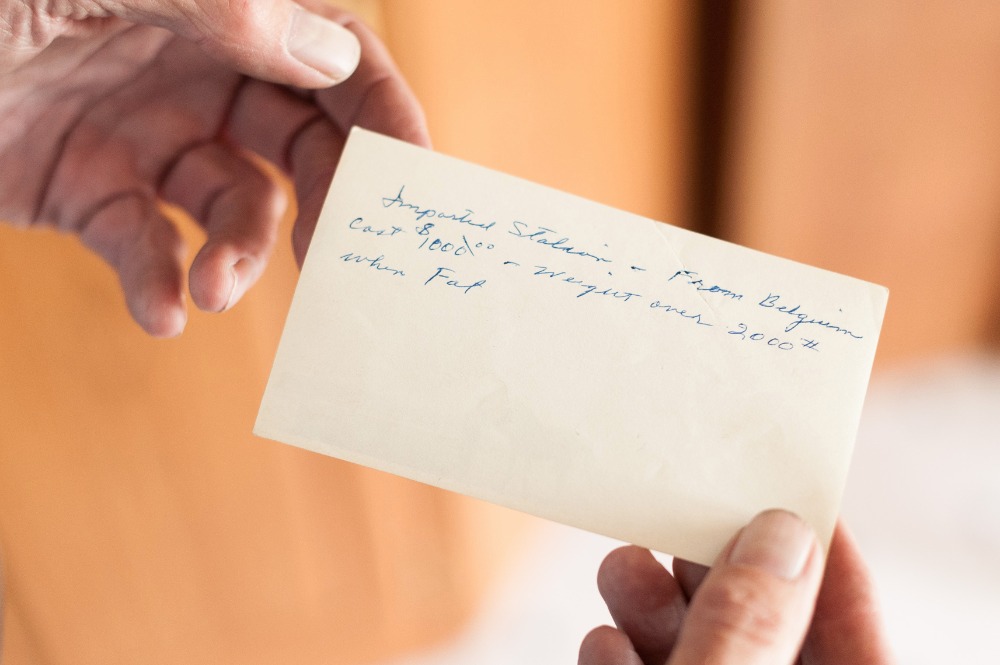 Imported Stalion - From Belguim
Cost $1000.00 - Weigut over 2,000 #
when Fat